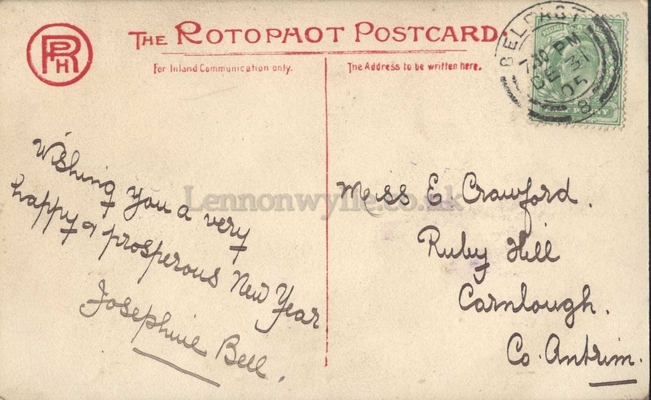 RPH
THE ROTOPHOT POSTCARD.
For Inland Communication only.
The Address to be written here.
BELFAST
7.30 PM
DE 31
05
8
Wishing you a very
happy & prosperous New Year
Josephine Bell.
Lennonwylie.co.uk
Miss E Crawford.
Ruby Hill
Carnlough.
Co. Antrim.